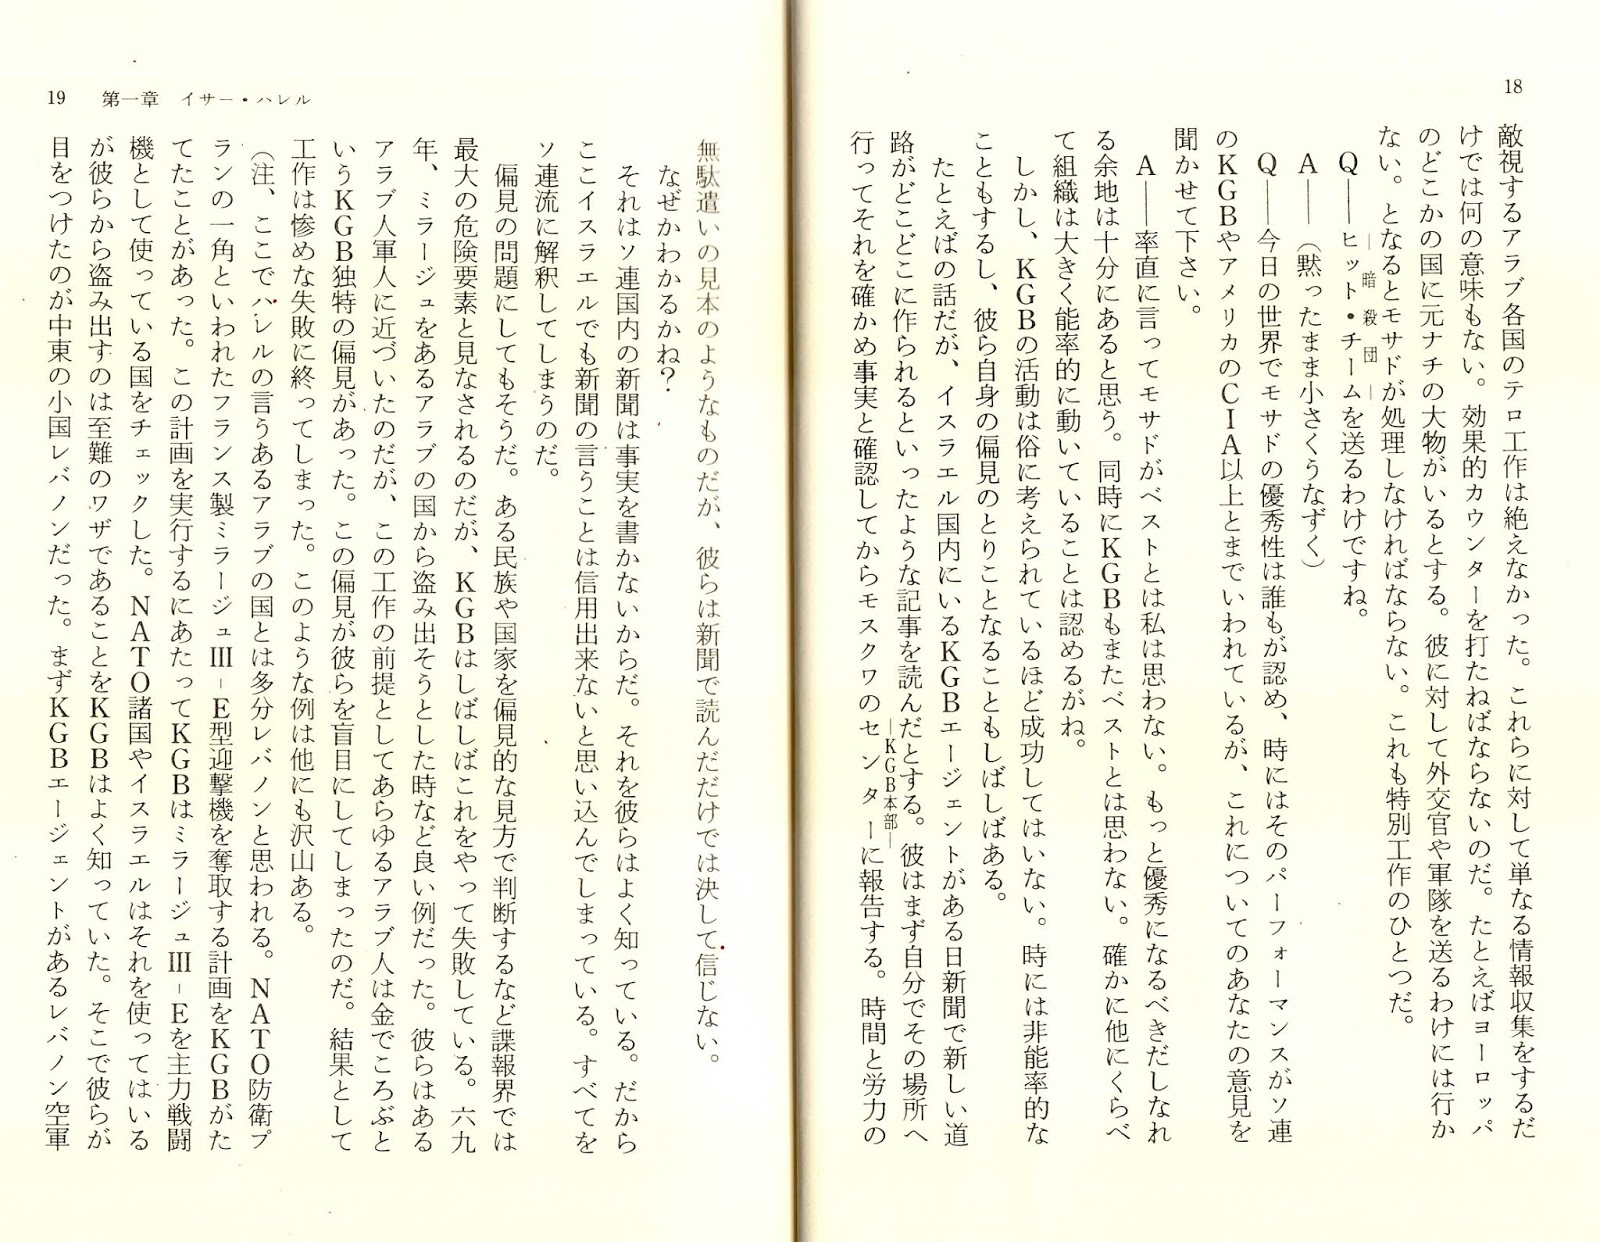 18
敵視するアラブ各国のテロ工作は絶えなかった。これらに対して単なる情報収集をするだ
けでは何の意味もない。効果的カウンターを打たねばならないのだ。たとえばヨーロッパ
のどこかの国に元ナチの大物がいるとする。彼に対して外交官や軍隊を送るわけには行か
ない。となるとモサドが処理しなければならない。これも特別工作のひとつだ。
―暗殺団―
Q――ヒット・チームを送るわけですね。
A――（黙ったまま小さくうなずく）
Q――今日の世界でモサドの優秀性は誰もが認め、時にはそのパーフォーマンスがソ連
のKGBやアメリカのCIA以上とまでいわれているが、これについてのあなたの意見を
聞かせて下さい。
A――率直に言ってモサドがベストとは私は思わない。もっと優秀になるべきだしなれ
る余地は十分にあると思う。同時にKGBもまたベストとは思わない。確かに他にくらべ
て組織は大きく能率的に動いていることは認めるがね。
しかし、KGBの活動は俗に考えられているほど成功してはいない。時には非能率的な
こともするし、彼ら自身の偏見のとりことなることもしばしばある。
たとえばの話だが、イスラエル国内にいるKGBエージェントがある日新聞で新しい道
路がどこどこに作られるといったような記事を読んだとする。彼はまず自分でその場所へ
―KGB本部―
行ってそれを確かめ事実と確認してからモスクワのセンターに報告する。時間と労力の
19 第一章 イサー・ハレル
無駄遣いの見本のようなものだが、彼らは新聞で読んだだけでは決して信じない。
なぜかわかるかね？
それはソ連国内の新聞は事実を書かないからだ。それを彼らはよく知っている。だから
ここイスラエルでも新聞の言うことは信用出来ないと思い込んでしまっている。すべてを
ソ連流に解釈してしまうのだ。
偏見の問題にしてもそうだ。ある民族や国家を偏見的な見方で判断するなど諜報界では
最大の危険要素と見なされるのだが、KGBはしばしばこれをやって失敗している。六九
年、ミラージュをあるアラブの国から盗み出そうとした時など良い例だった。彼らはある
アラブ人軍人に近づいたのだが、この工作の前提としてあらゆるアラブ人は金でころぶと
いうKGB独特の偏見があった。この偏見が彼らを盲目にしてしまったのだ。結果として
工作は惨めな失敗に終ってしまった。このような例は他にも沢山ある。
（注、ここでハレルの言うあるアラブの国とは多分レバノンと思われる。NATO防衛プ
ランの一角といわれたフランス製ミラージュⅢ-E型迎撃機を奪取する計画をKGBがた
てたことがあった。この計画を実行するにあたってKGBはミラージュⅢ-Eを主力戦闘
機として使っている国をチェックした。NATO諸国やイスラエルはそれを使ってはいる
が彼らから盗み出すのは至難のワザであることをKGBはよく知っていた。そこで彼らが
目をつけたのが中東の小国レバノンだった。まずKGBエージェントがあるレバノン空軍